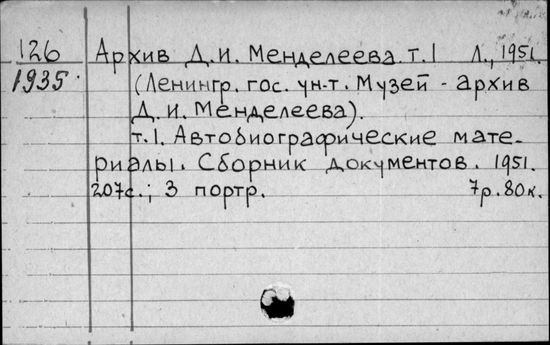 126 Архив Д.И. Менделеева. т.1 Л., 1951.
1935. (Ленингр. гос. ун-т. Музей - архив
Д.И. Менделеева).
т.1. Автобиографические мате-
риалы. Сборник документов. 1951.
207с.; 3 портр. 7р.80к.